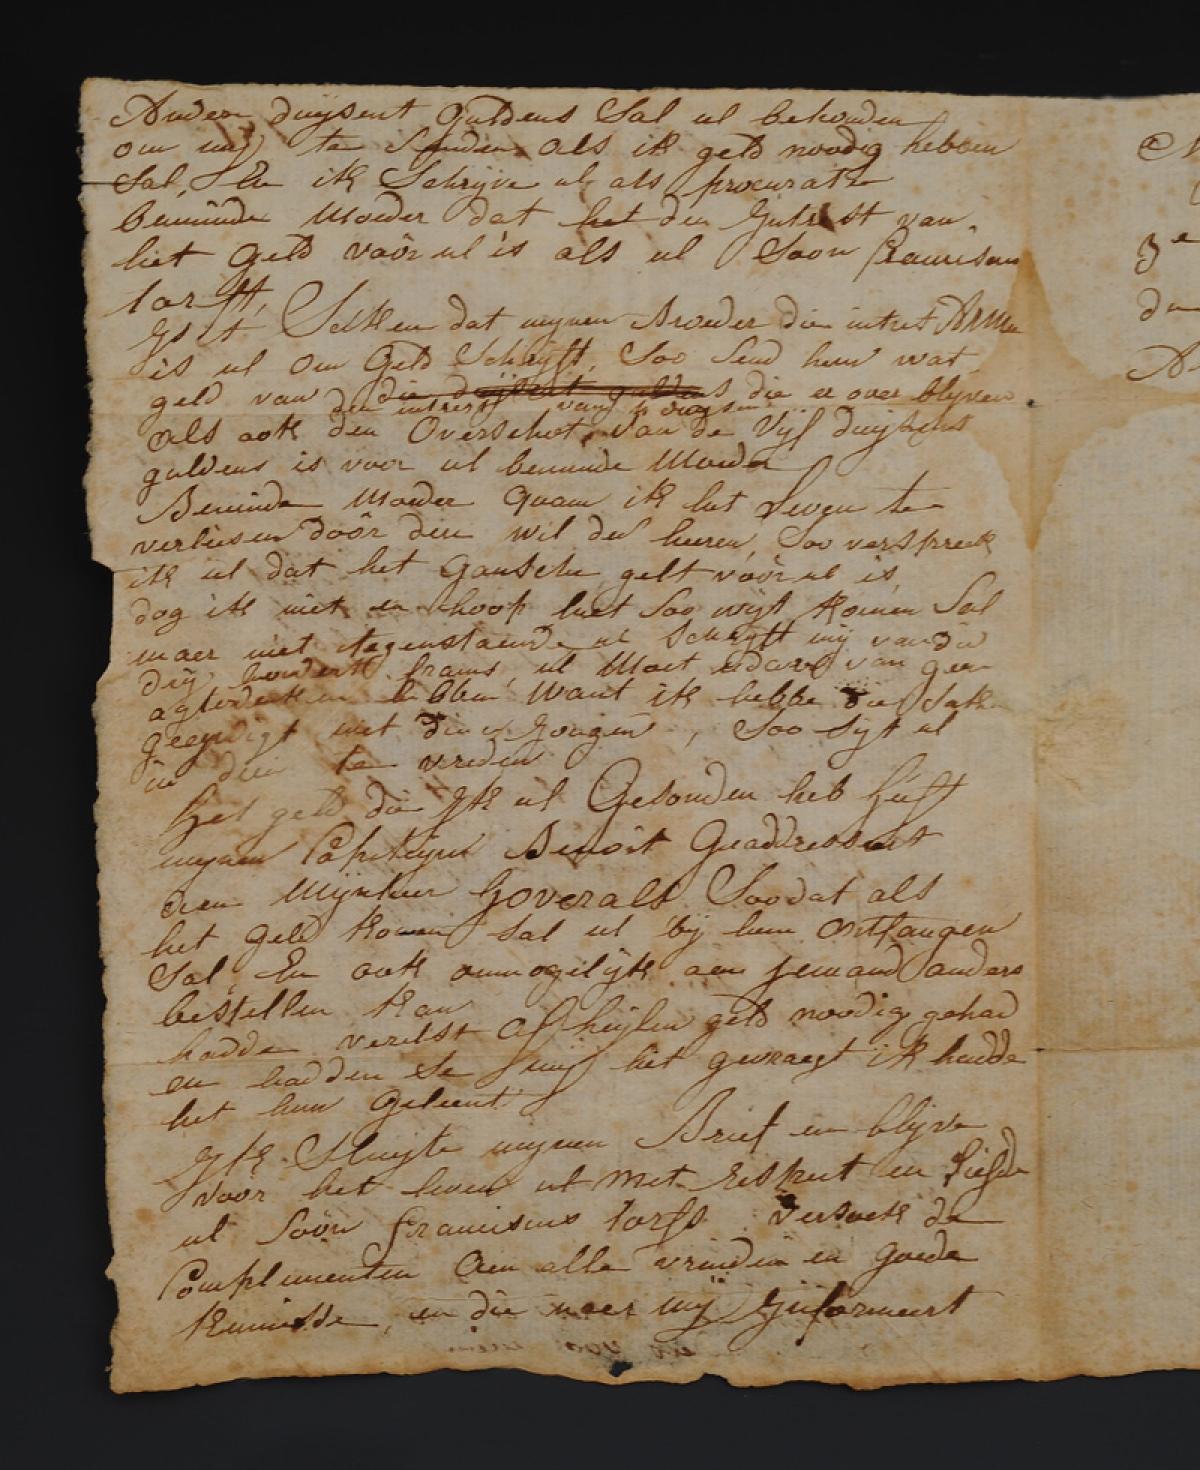 Ander duijsent guldens Sal ul behouden
om mij te Senden als ik geld noodig hebben
Sal, En ik Schrijve ul als procuratie
beminde Moeder dat het den Intrest van
het geld voor ul is als ul Soon Franciscus
torfs,
Is't Saeken dat mijnen Broeder die in het Arme
is ul om geld Schrijft, Soo Send hem wat
geld van die duijsent guldens die er over blijven
den intrest van
als ook den Overschot, van de Vijf duijsent
guldens is voor ul beminde Moeder
Beminde Moeder quam ik het Leven te
verliesen door den wil des heeren, Soo verspreek
ik ul dat het Gansche gelt voor ul is,
dog ik niet en hoop het Soo wijt komen Sal
maer niet tegenstaende ul Schrijft mij van die
drij hondert frans, ul Moet daer van geen
agterdenken hebben Want ik hebbe die Sake
geeyndigt met die Jongen, Soo Sijt ul
in dien te vreden
Het geld die Ik ul Gesonden heb heeft
mijnen Capitijn Benoit Geaddresseert
aen Mijnheer Goverals Soodat als
het geld komen Sal ul bij hem ontfangen
Sal, En ook onmogelijk aen jemand anders
bestellen kan
hadde verelst of heijlen geld noodig gehad
en hadden Se mij het gevraegt ik hadde
het hun geleent
Ik Sluijte mijnen Brief en blijve
voor het leven ul met respect en Liefde
ul Soon franciscus torfs versoek de
Complimenten Aen alle vrinden en goede
kennisse, en die naer mij Informeert
3e